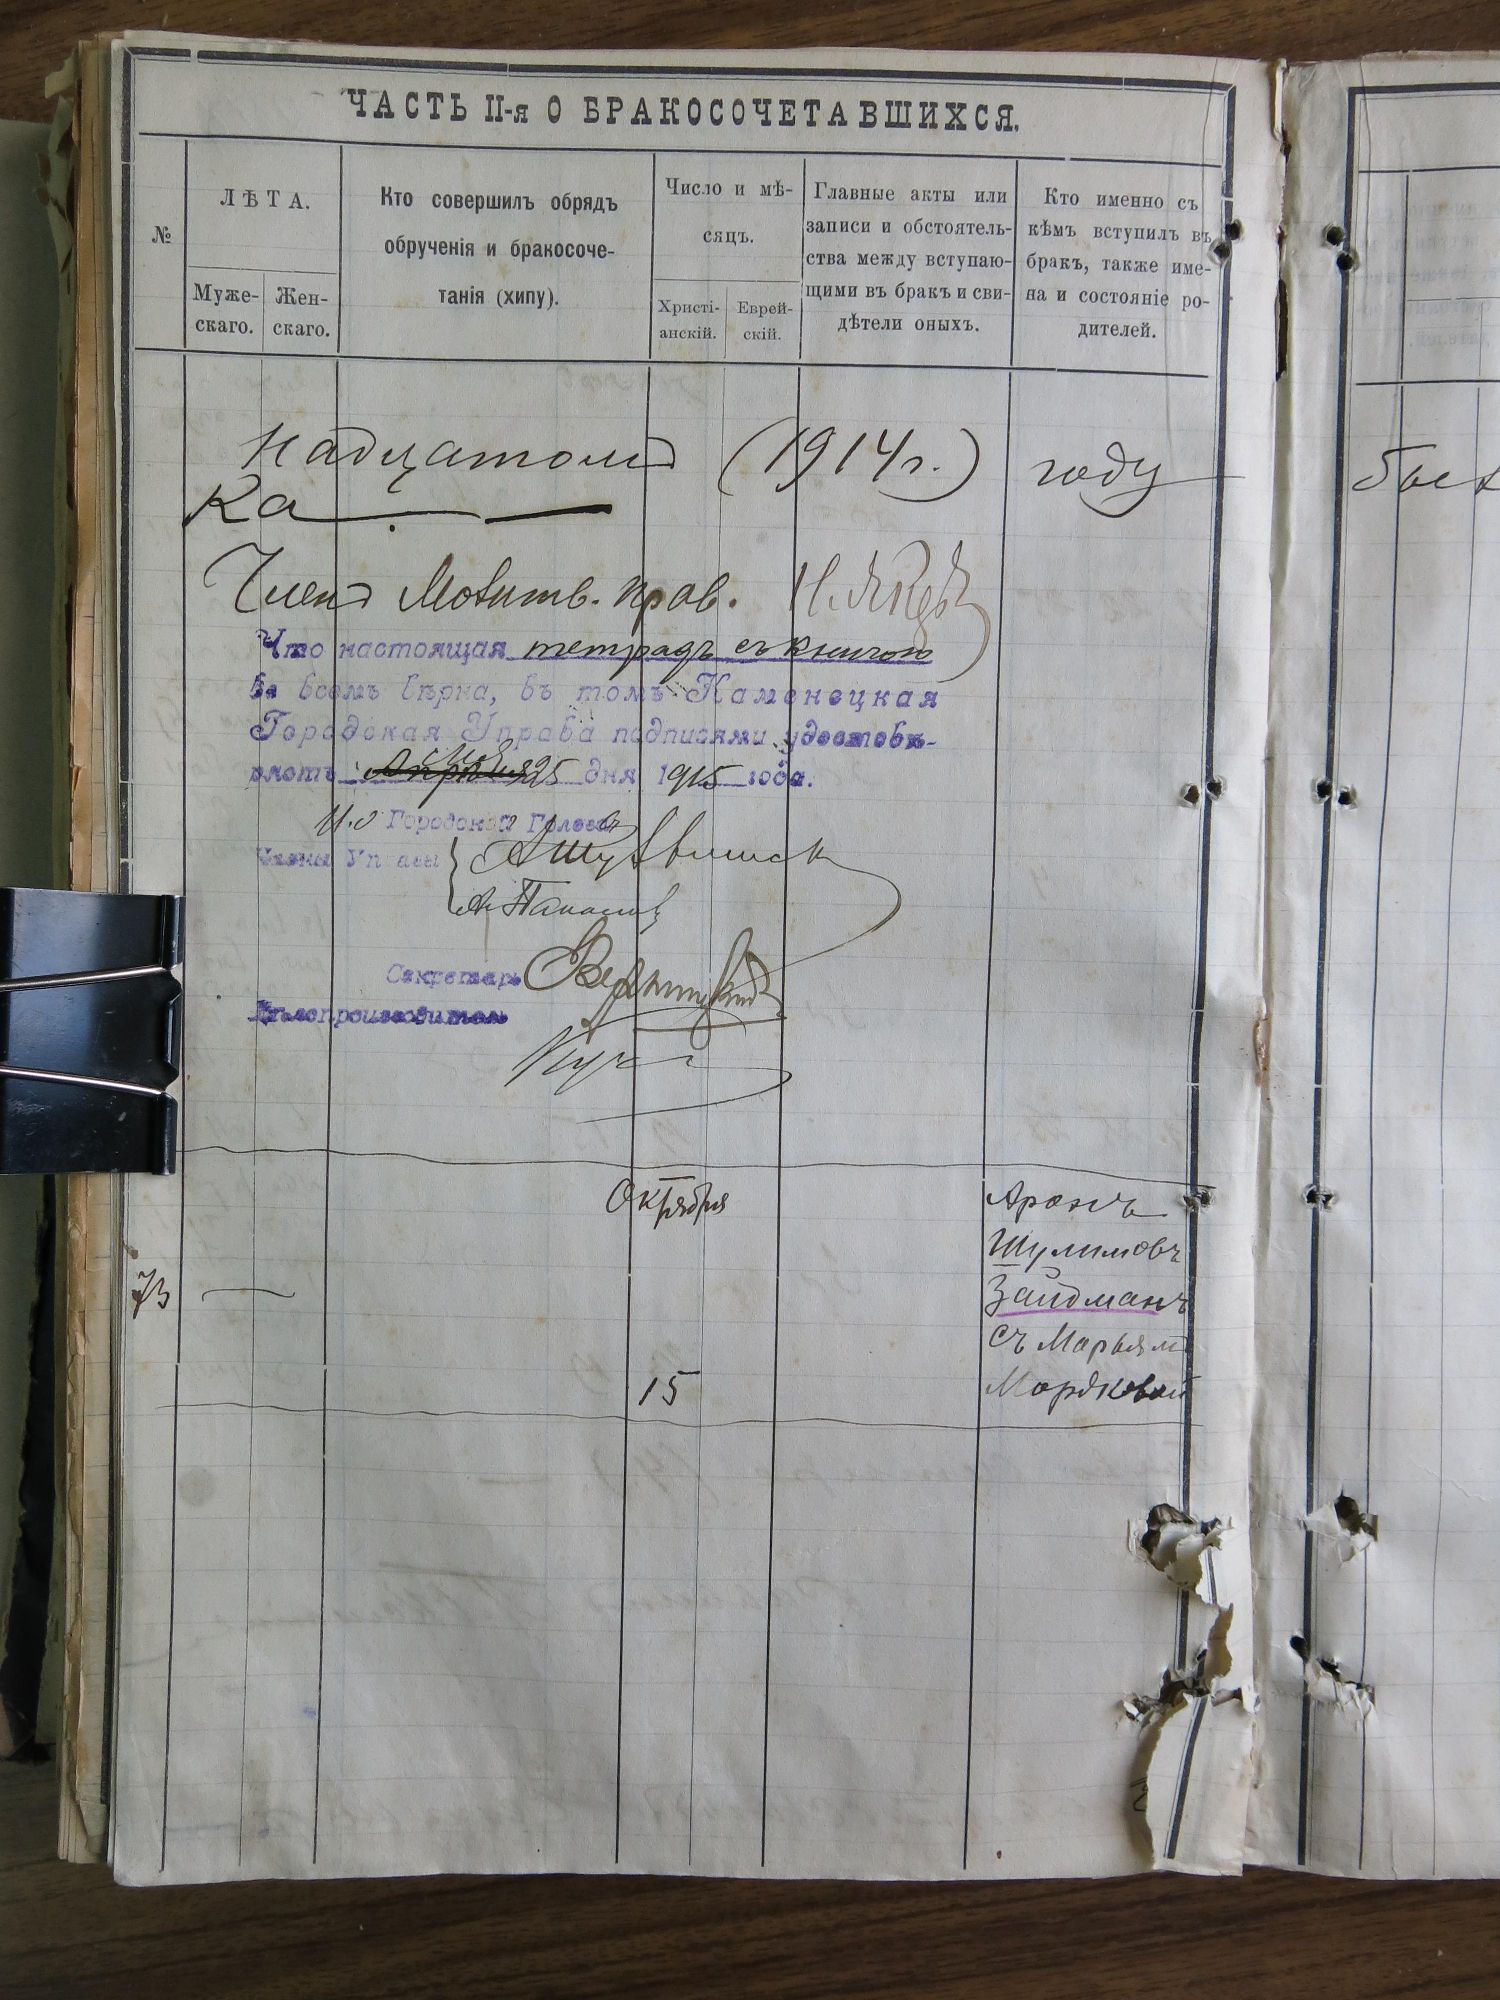 ЧАСТЬ II-я О БРАКОСОЧЕТАВШИХСЯ.
№
ЛѢТА.
Муже-
скаго.
Жен-
скаго.
Кто совершилъ обрядъ
обрученія и бракосоче-
танія (хипу).
Число и мѣ-
сяцъ.
Христі-
анскій.
Еврей-
скій.
Главные акты или
записи и обстоятель-
ства между вступаю-
щими въ бракъ и сви-
дѣтели оныхъ.
Кто именно съ
кѣмъ вступилъ въ
бракъ, также име-
на и состояніе ро-
дителей.
надцатомъ (1914 г.) году
ка
Членъ Молитв. прав.
Что настоящая тетрадь съ книгою
во всемъ вѣрна, въ томъ Каменецкая
Городская Управа подписями удостовѣ-
ряетъ 25 дня 1915 года.
И.о Городской Голова
Члены Управы
Секретарь
Дѣлопроизводитель
Октября
73
15
Аронъ
Шулимовъ
Зайдманъ
съ Марьям
Мордковой